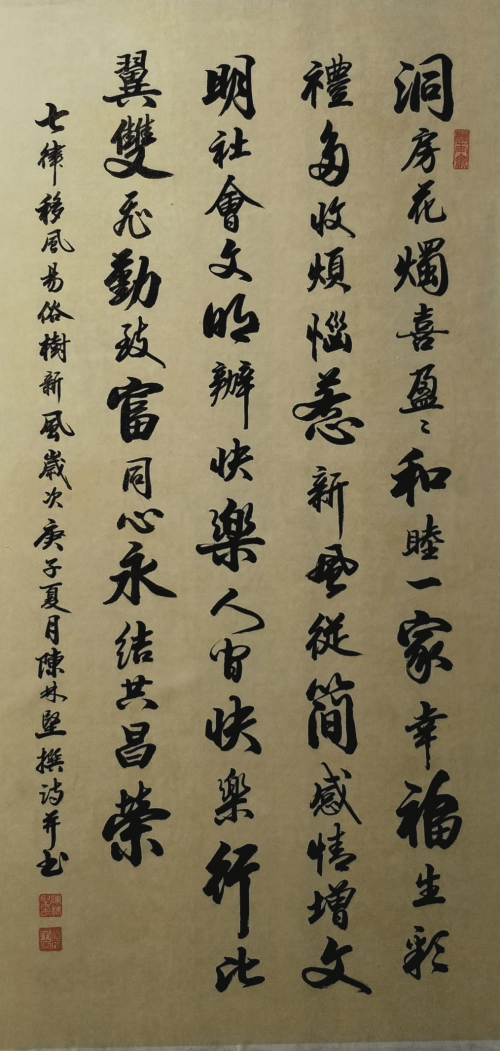 洞房花燭喜盈〻和睦一家幸福生彩
禮多收煩惱惹新風從簡感情增文
明社會文明辦快樂人間快樂行比
翼雙飛勤致富同心永結共昌榮
七律移風易俗樹新風歲次庚子夏月陳林堅撰詩并書